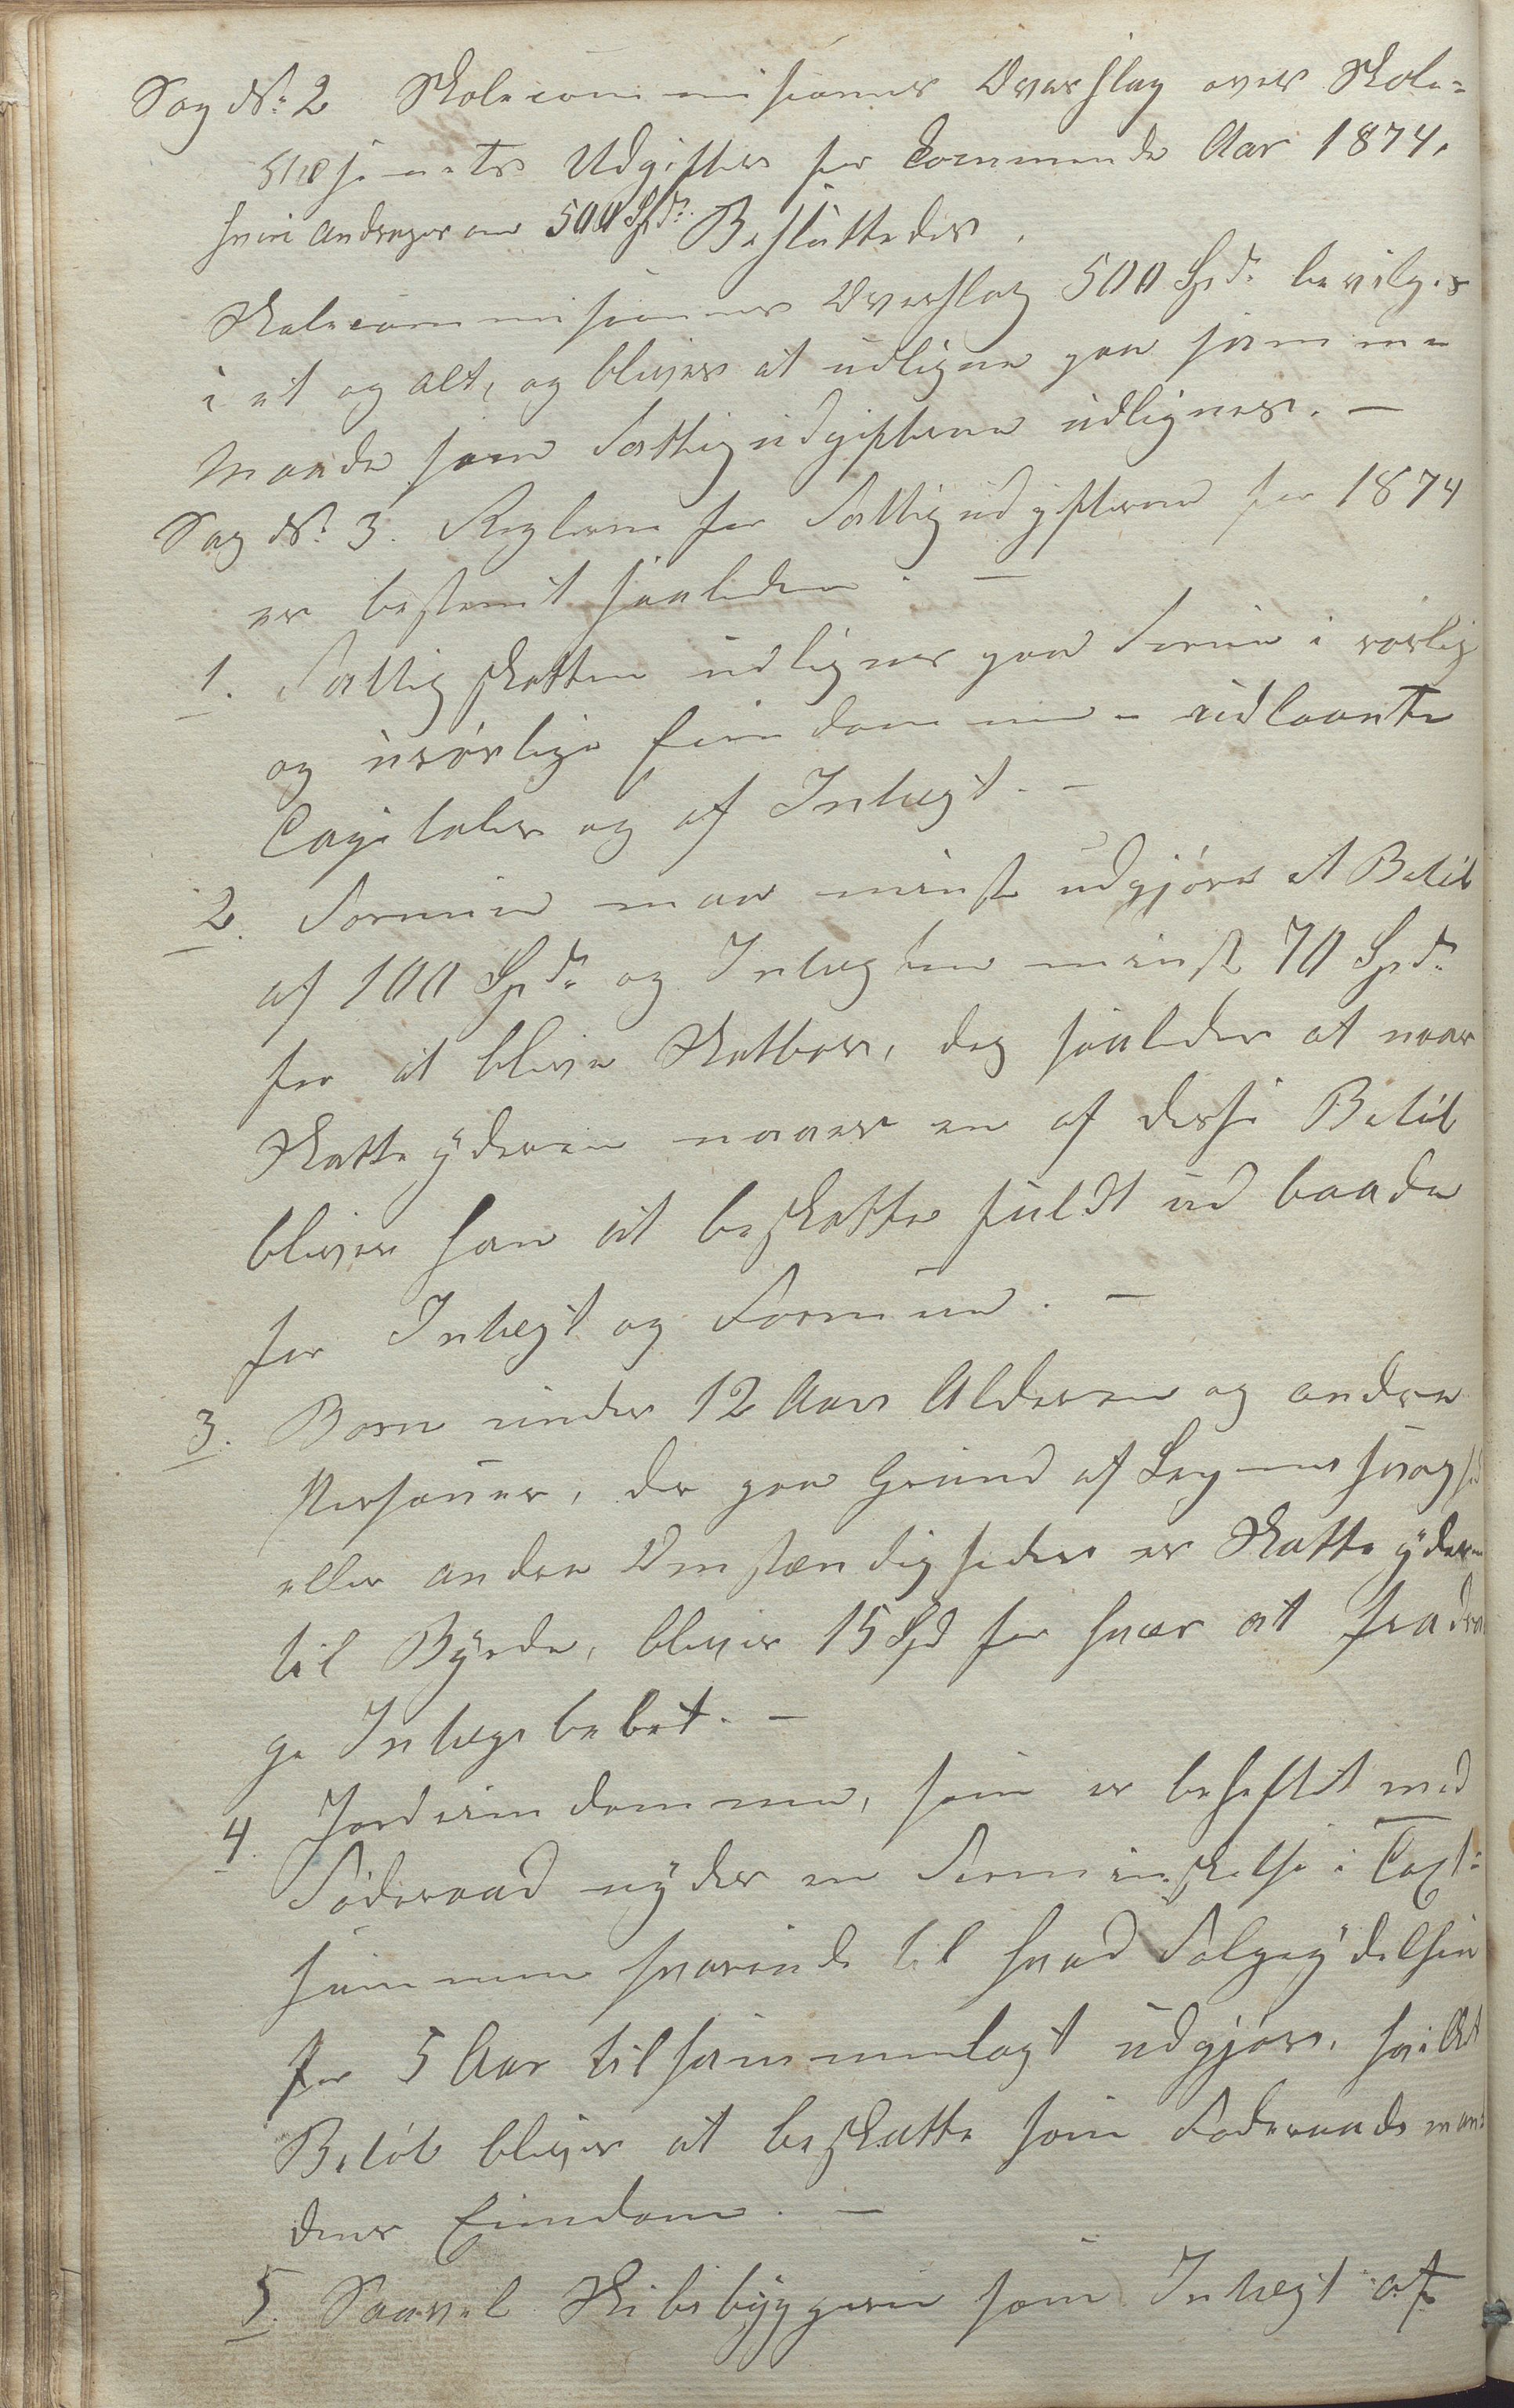 Sag No. 2 Skolecommisionens Overslag over Skole-
væsenets Udgifter for kommende Aar 1874,
hvori andrages om 500 Spd. Besluttedes.
Skolecommisionens Overslag 500 Spd. bevilges
i et og alt, og bliver at udligne paa samme
Maade som Fattigudgifterne udlignes. —
Sag No. 3. Reglerne for Fattigudgifterne for 1874
er bestemt saaledes. —
1. Fattigskatten udlignes paa Formue i rörlig
og urörlige Eiendomme - udlaante
Capitaler og af Intægt. —
2. Formuen maa minst udgjöre et Belöb
af 100 Spd. og Intægten minst 70 Spd.
for at blive Skatbar, dog saaledes at naar
Skatteyderen naaer en af disse Belöb
bliver han at beskatte fuldt ud baade
for Intægt og Formue. —
3. Børn under 12 Aars Alderen og andre
Personer, der paa Grund af Legemssvaghed
eller andre Omstændigheder er Skatteyderen
til Byrde, bliver 15 Spd for hver at fradra
ge Intægsbelöbet. —
4. Jordeiendomme, som er beheftet med
Föderaad nyder en Forminskelse i Taxt-
summen svarende til hvad Folgeydelsen
for 5 Aar tilsammenlagt udgjör, hvilket
Belöb bliver at beskatte som Föderaadsman-
dens Eiendom. —
5. Saavel Skibsbyggeri som Intægt af